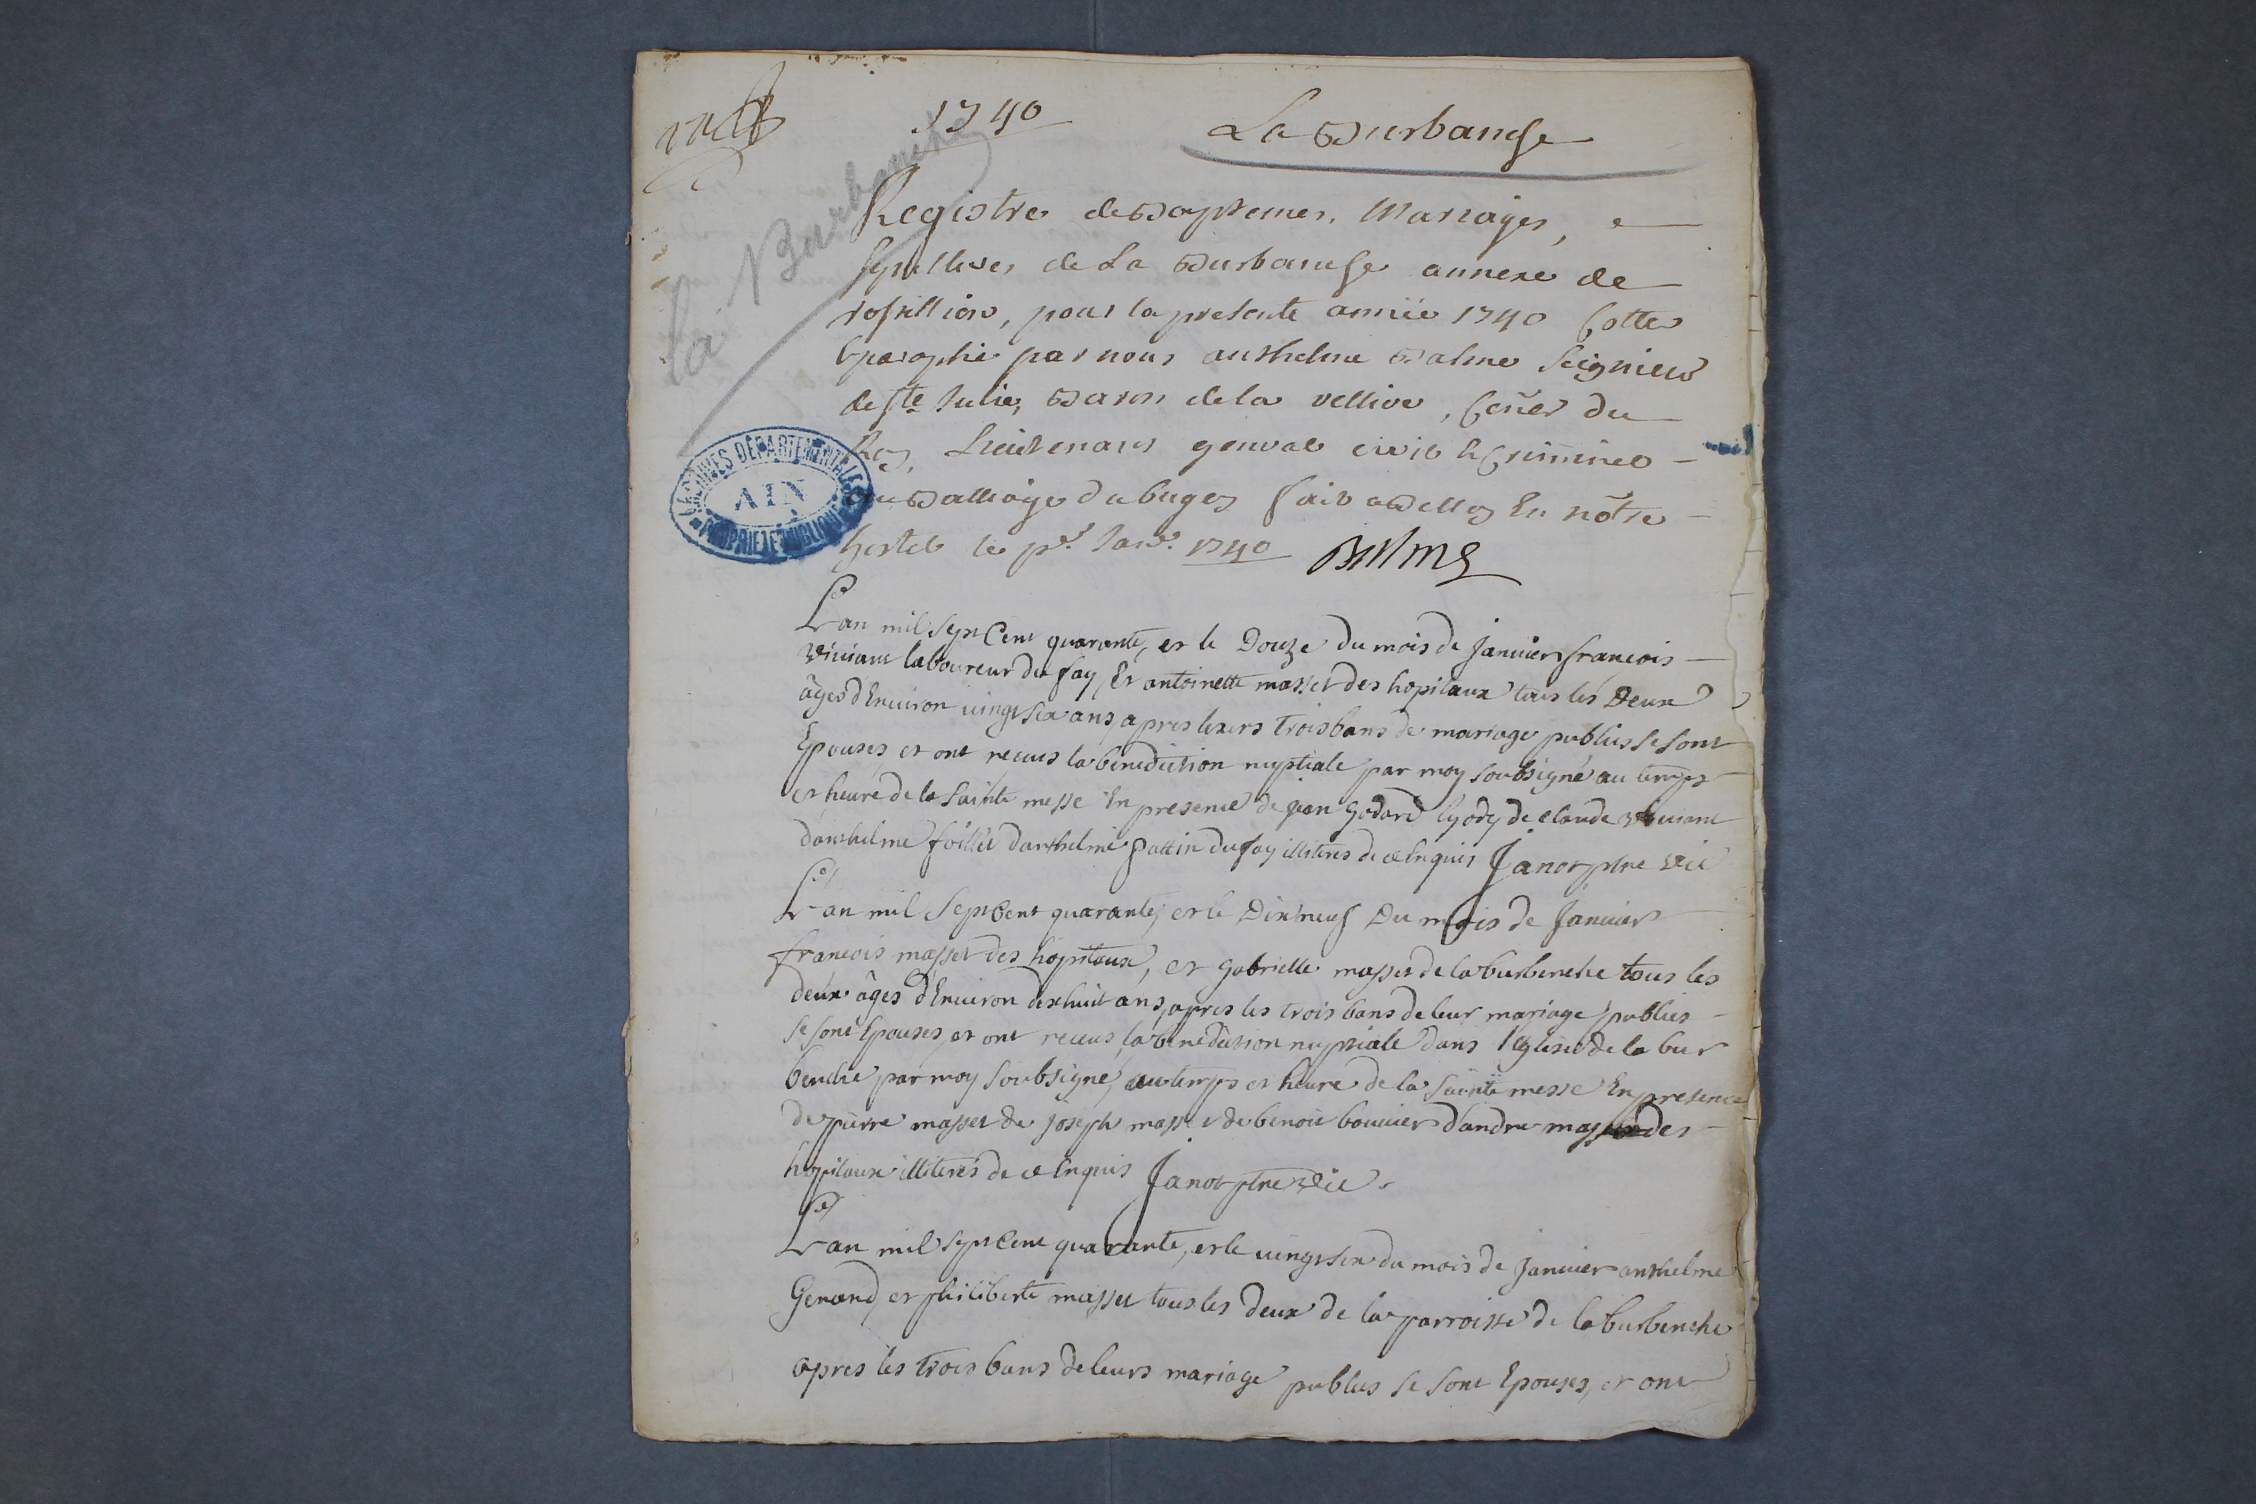 1740
La Burbanche
la Burbanche
Registre de Baptemes, Mariages, e
sepultures de La Burbanche annexe de
rossillion, pour la presente année 1740 Cotté
Eparaphé par nous anthelme Balme Seigneur
de Ste Julie, Baron de la vellive, Coner du
Roy, Lieutenant general civil & Criminel
au Balliage du bugey fait a Belley En nôtre
hostel le pr. Janv. 1740 Balme
ARCHIVES DÉPARTEMENTALES
AIN
PROPRIÉTÉ PUBLIQUE
L'an mil sept Cent quarante, et le Douze du mois de Janvier francois
viviant laboureur du fay, Et antoinette masset des hopitaux tous les Deux
âges d'Environ vingt six ans, apres leurs trois bans de mariage publies se sont
Epousés et ont recus la benediction nuptiale par moy soubsigné au temps
et heure de la sainte messe En presence de jean Godard de claude viviant
d'anthelme foillet d'anthelme du fay illiteres de ce Enquis Janot ptre vic
L'an mil Sept Cent quarante, et le Dix neuf Du mois de Janvier
francois masset des hôpitaux, et Gabrielle masset de la burbenche tous les
deux âges d'Environ dix huit ans, apres les trois bans de leur mariage publies
se sont Epouses, et ont recus la benediction nuptiale dans l'Eglise de la bur
benche par moy soubsigné, au temps et heure de la sainte messe En presence
de pierre masset de joseph masset de benoit bouvier d'andre masset des
hopitaux illiteres de ce Enquis Janot ptre vic.
L'an mil sept Cent quarante, et le vingt six du mois de Janvier anthelme
Genand, et philiberte masset tous les deux de la parroisse de la burbenche
apres les trois bans de leurs mariage publies se sont Epouses, et ont